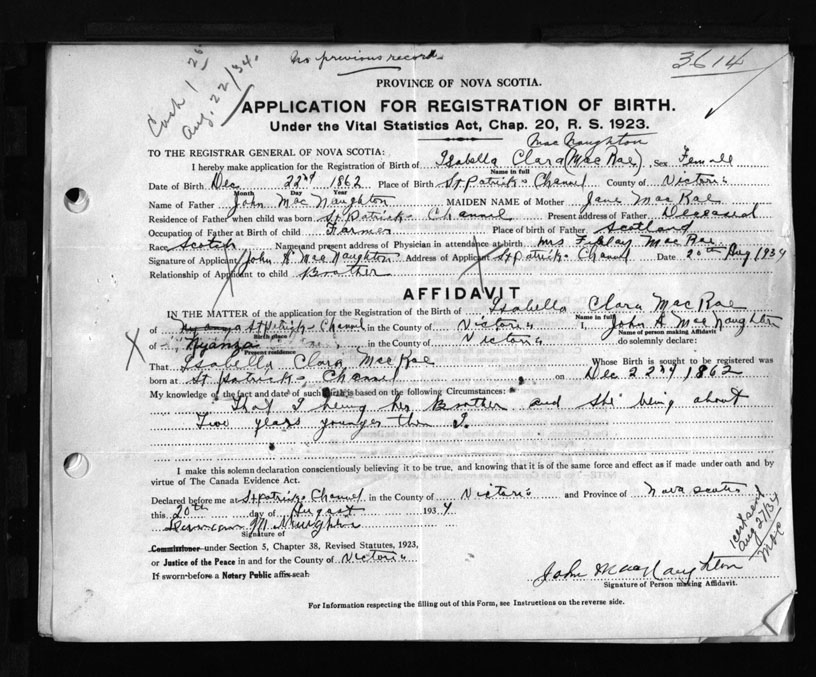 No previous record
3614
Cash 1 25
Aug. 22/34.
PROVINCE OF NOVA SCOTIA.
APPLICATION FOR REGISTRATION OF BIRTH.
Under the Vital Statistics Act, Chap. 20, R. S. 1923.
Mac Naughton
TO THE REGISTRAR GENERAL OF NOVA SCOTIA:
I hereby make application for the Registration of Birth of Isabella Clara (Mac Rae) Sex Female
Name in full
Date of Birth Dec 22nd 1862 Place of Birth St Patricks Channel County of Victoria
Month Day Year
Name of Father John Mac Naughton MAIDEN NAME of Mother Jane Mac Rae
Residence of Father when child was born St Patricks Channel Present address of Father Deceased
Occupation of Father at Birth of child Farmer Place of birth of Father Scotland
Race Scotch Name and present address of Physician in attendance at birth Mrs Finlay Mac Rae
Signature of Applicant John A Mac Naughton Address of Applicant St Patricks Channel Date 20th Aug 1934
Relationship of Applicant to child Brother
AFFIDAVIT
IN THE MATTER of the application for the Registration of the Birth of Isabella Clara Mac Rae
Name in full
of Nyanza St Patricks Channel in the County of Victoria I, John A Mac Naughton
Birth place Name of person making Affidavit
of Nyanza in the County of Victoria do solemnly declare:
Present residence
That Isabella Clara Mac Rae Whose Birth is sought to be registered was
born at St Patricks Channel on Dec 22nd 1862
My knowledge of the fact and date of such birth is based on the following Circumstances:
That I being her Brother and she being about
Two years younger then I.
I make this solemn declaration conscientiously believing it to be true, and knowing that it is of the same force and effect as if made under oath and by
virtue of The Canada Evidence Act.
Declared before me at St Patricks Channel in the County of Victoria and Province of Nova Scotia
this 20th day of August 1934
Signature of
Commissioner under Section 5, Chapter 38, Revised Statutes, 1923,
or Justice of the Peace in and for the County of Victoria
If sworn before a Notary Public affix seal
1 cert sent
Aug 27/34
John Mac Naughton
Signature of Person making Affidavit.
For Information respecting the filling out of this Form, see Instructions on the reverse side.